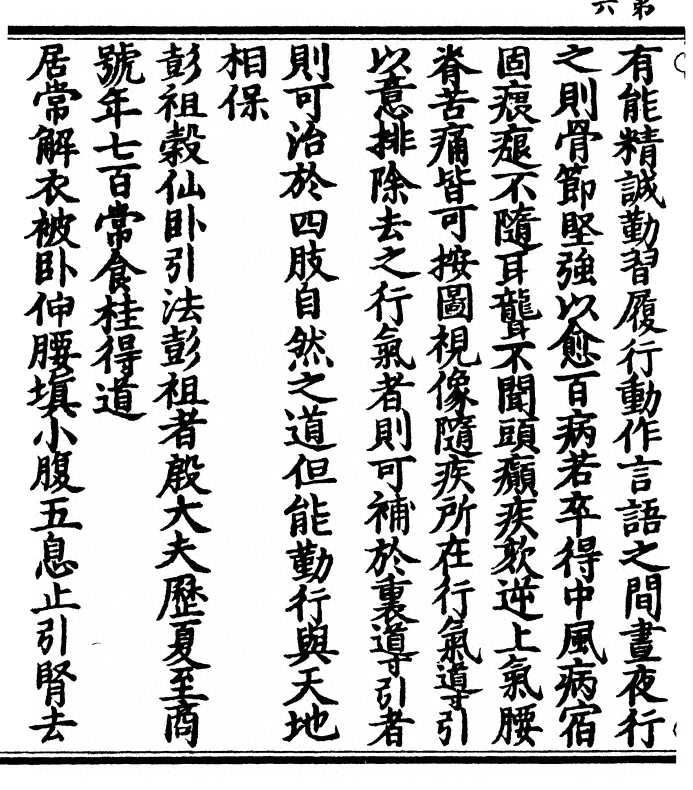 第六
有能精誠勤習履行動作言語之間晝夜行
之則骨節堅強以愈百病若卒得中風病宿
固㾯𤸬不隨耳聾不聞頭癲疾欬逆上氣腰
脊苦痛皆可按圖視像隨疾所在行氣導引
以意排除去之行氣者則可補於裏導引者
則可治於四肢自然之道但能勤行與天地
相保
彭祖穀仙卧引法彭祖者殷大夫歷夏至商
號年七百常食桂得道
居常解衣被卧伸腰填小腹五息止引腎去